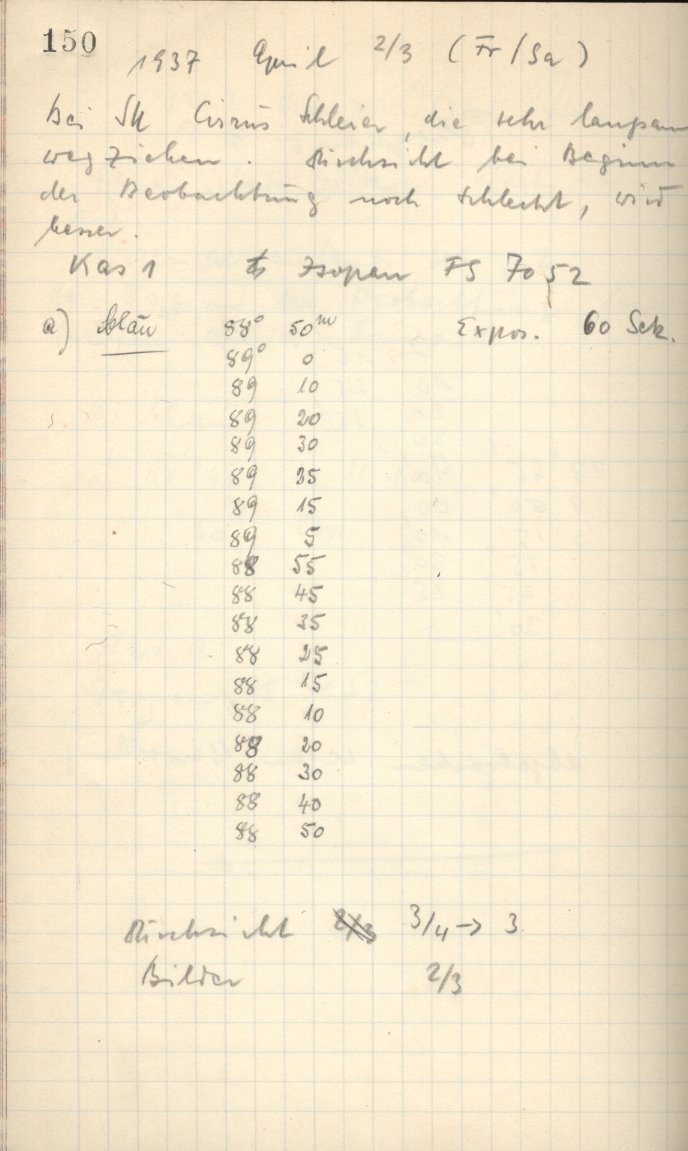 150
1937 April 2/3 (Fr/Sa)
Bei SU Cirrus Schleier, die sehr langsam
wegziehen. Durchsicht bei Beginn
der Beobachtung noch schlecht, wird
besser.
Kas 1 Isopan FS 7052
a) blau 88° 50m Expos. 60 Sek.
89° 0
89 10
89 20
89 30
89 25
89 15
89 5
88 55
88 45
88 35
88 25
88 15
88 10
88 20
88 30
88 40
88 50
Durchsicht 2/3 3/4 → 3
Bilder 2/3